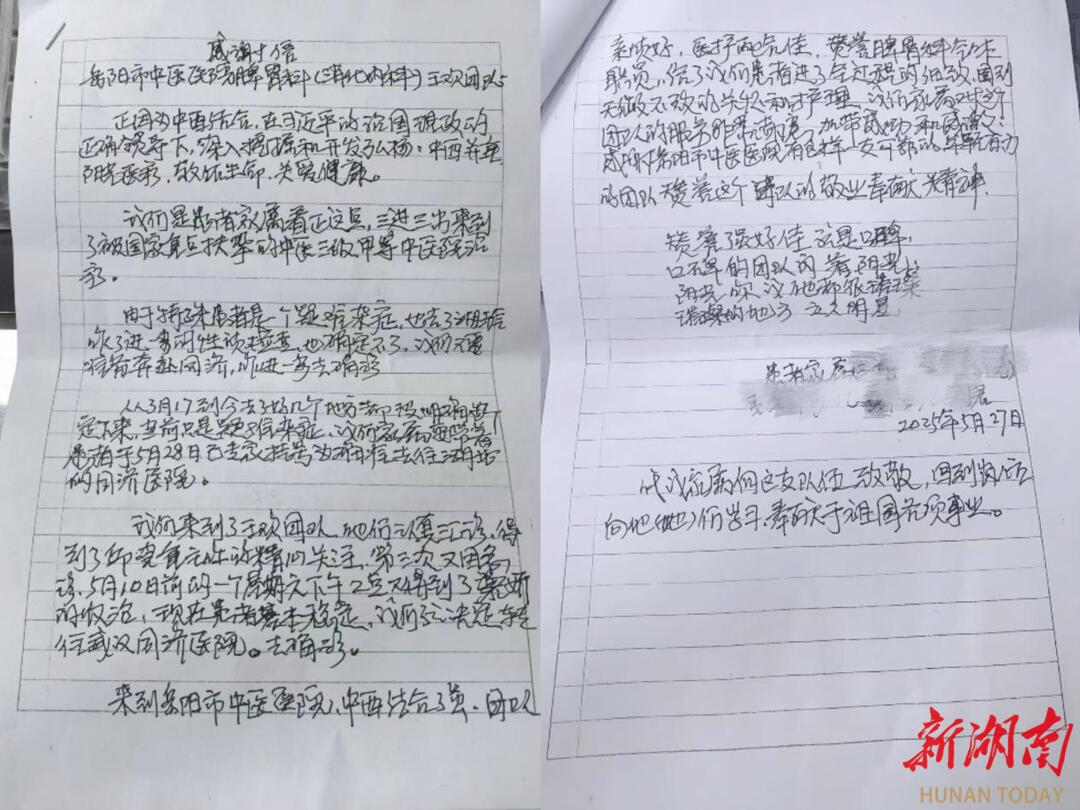 感谢信
岳阳市中医医院脾胃科(消化内科)王欢团队
正因为中西结合,在习近平的治国理政的
正确领导下,深入挖掘和开发弘扬:中西并重
阳光医疗,敬佑生命,关爱健康。
我们是患者家属看正这点,三进三出来到
了被国家重点扶拳的中医三级甲等中医院治
疗。
由于特殊患者是一个疑难杂症,也去了湘雅
做了进一步明性读检查,也确定不了,我们不
前奔赴同济,作进一步去确诊
从3月17到今去了好几个地方都没明确断
定下来,当前只是疑难杂症,我们家属要带着
患者于5月28日已专家挂号为确
的同济医院。
我们来到了王欢团队,他们认真汇诊,得
到了
精心关注,第三次又因
5月10日前的一个星期六下午2点又得到了
的收治,现在患者基本稳定,我们已决定转
往武汉同济医院。去确诊。
来到岳阳市中医医院,中西结合了强。团队
素质好,医护两白佳,赞誉脾胃科全体
职员,给了我们患者进了全过程的细致,周到
无微不致的关怀和护理,我们家属对这个
团队的服务非常满意,加带感动和感激!
感谢岳阳市中医医院有这样一支可靠的卓有力
的团队赞誉这个团队的敬业奉献精神
赞誉了强好佳 这是口碑,
口碑的团队闪着阳光,
阳光照我他都很璀璨
璀璨的地方 立大明星
患者家属
君
2025年5月27日
代我家属向这支队伍致敬,回到岗位
向他(她)们学习,奉献于祖国各项事业。
新湖南
HUNAN TODAY